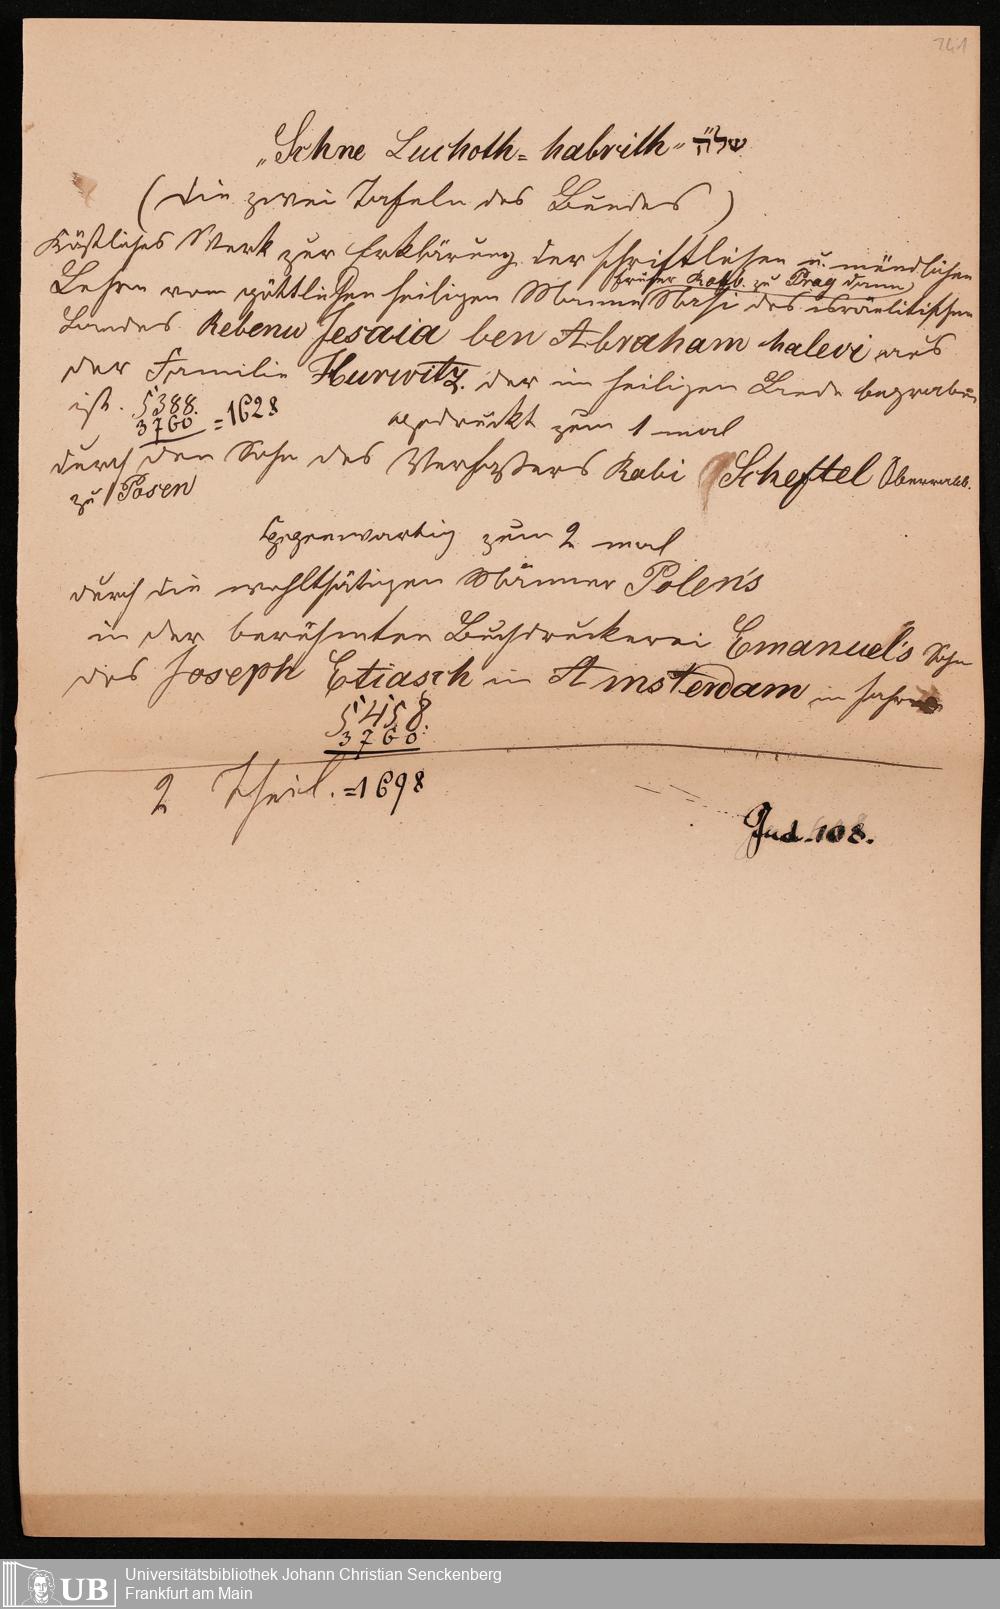 141
„Schne Luchoth=habrith“ של״ה
(die zwei Tafeln des Bundes)
Köstliches Werk zur Erklärung der schriftlichen u. mündlichen
früher Rabb. zu Prag dann
Lehre vom göttlichen heiligen Manne Nasi des israelitischen
Landes Rebenu Jesaia ben Abraham halevi aus
der Familie Hurwitz. der im heiligen Lande begraben
ist. 5388.
3760 =1628
gedruckt zum 1 mal
durch den Sohn des Verfassers Rabi Scheftel Oberrabb.
zu Posen
Gegenwartig zum 2 mal
durch die wohlthätigen Männer Polen's
in der berühmten Buchdruckerei Emanuel's Sohn
des Joseph Etiasch in Amsterdam im Jahre
5458.
3760.
2 Theil. =1698
Jud. 108.
UB Universitätsbibliothek Johann Christian Senckenberg
Frankfurt am Main